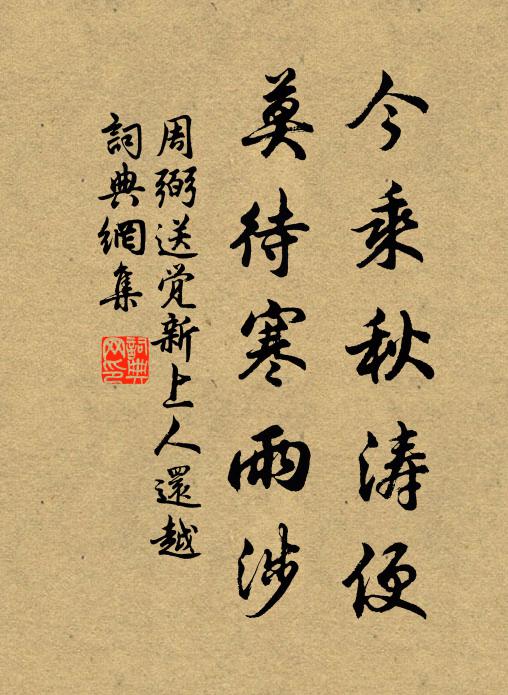 今乘秋涛便
莫待寒雨涉
周弼送觉新上人還越
詞典網集
詞典网印